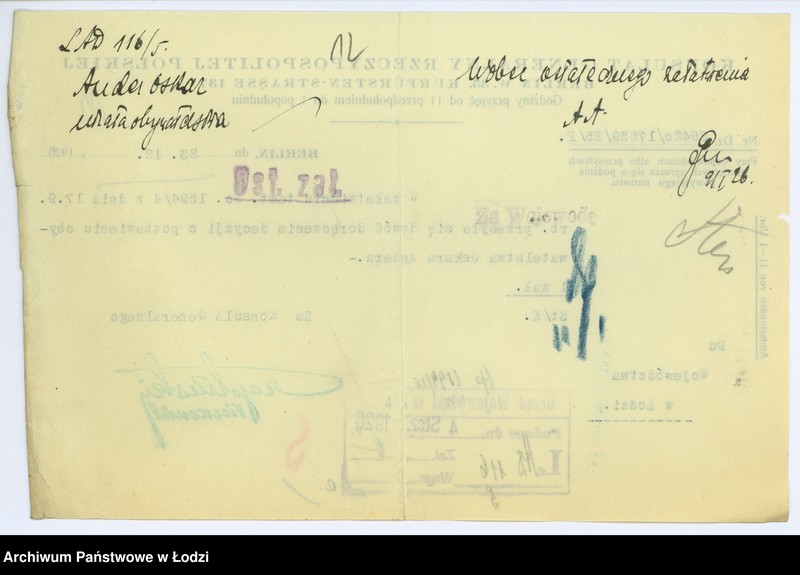 LAD 116/5.
12
Ander Oskar
utrata obywatelstwa
Wobec ostatecznego załatwienia
A.A.
9/I 26.
Ost. zał.
Za Wojewodę
KONSULAT GENERALNY RZECZYPOSPOLITEJ POLSKIEJ
KURFÜRSTEN-STRASSE
Godziny przyjęć od 11 przedpołudniem do 1 popołudniu
BERLIN, dn. 23. 12. 1925
W załatwieniu 1594/4 z dnia 17.9.
rb. przesyła się dowód doręczenia decyzji o pozbawieniu oby-
watelstwa Oskara Andera.-
1 zał.
St/K.
Za Konsula Generalnego
Wicekonsul
Do
Województwa
w Łodzi.
Urząd Wojewódzki
Podano dn. 4 Stcz. 1926
Zał.
L. AD 116/5
Amtsstunden von 11—1 Uhr.
Archiwum Państwowe w Łodzi